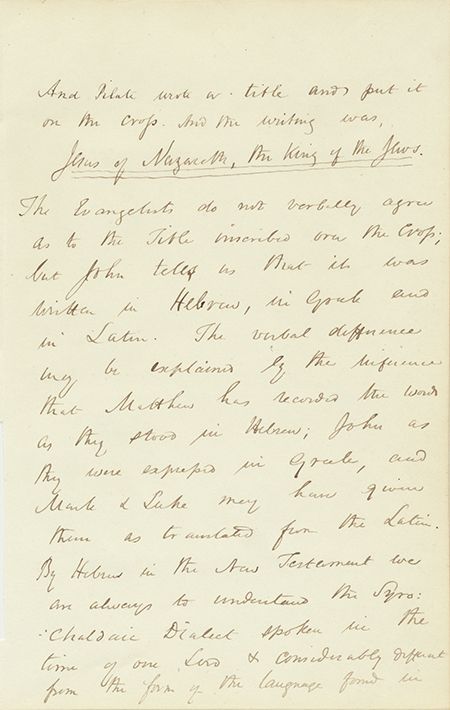 And Pilate wrote a title and put it
on the Cross. And the writing was,
Jesus of Nazareth, the King of the Jews.
The Evangelists do not verbally agree
as to the Title inscribed over the Cross;
but John tells us that it was
written in Hebrew, in Greek and
in Latin. The verbal difference
may be explained by the inference
that Matthew has recorded the words
as they stood in Hebrew; John as
they were expressed in Greek, and
Mark & Luke may have given
them as translated from the Latin.
By Hebrew in the New Testament we
are always to understand the Syro:
:Chaldaic Dialect spoken in the
time of our Lord & considerably different
from the form of the language found in